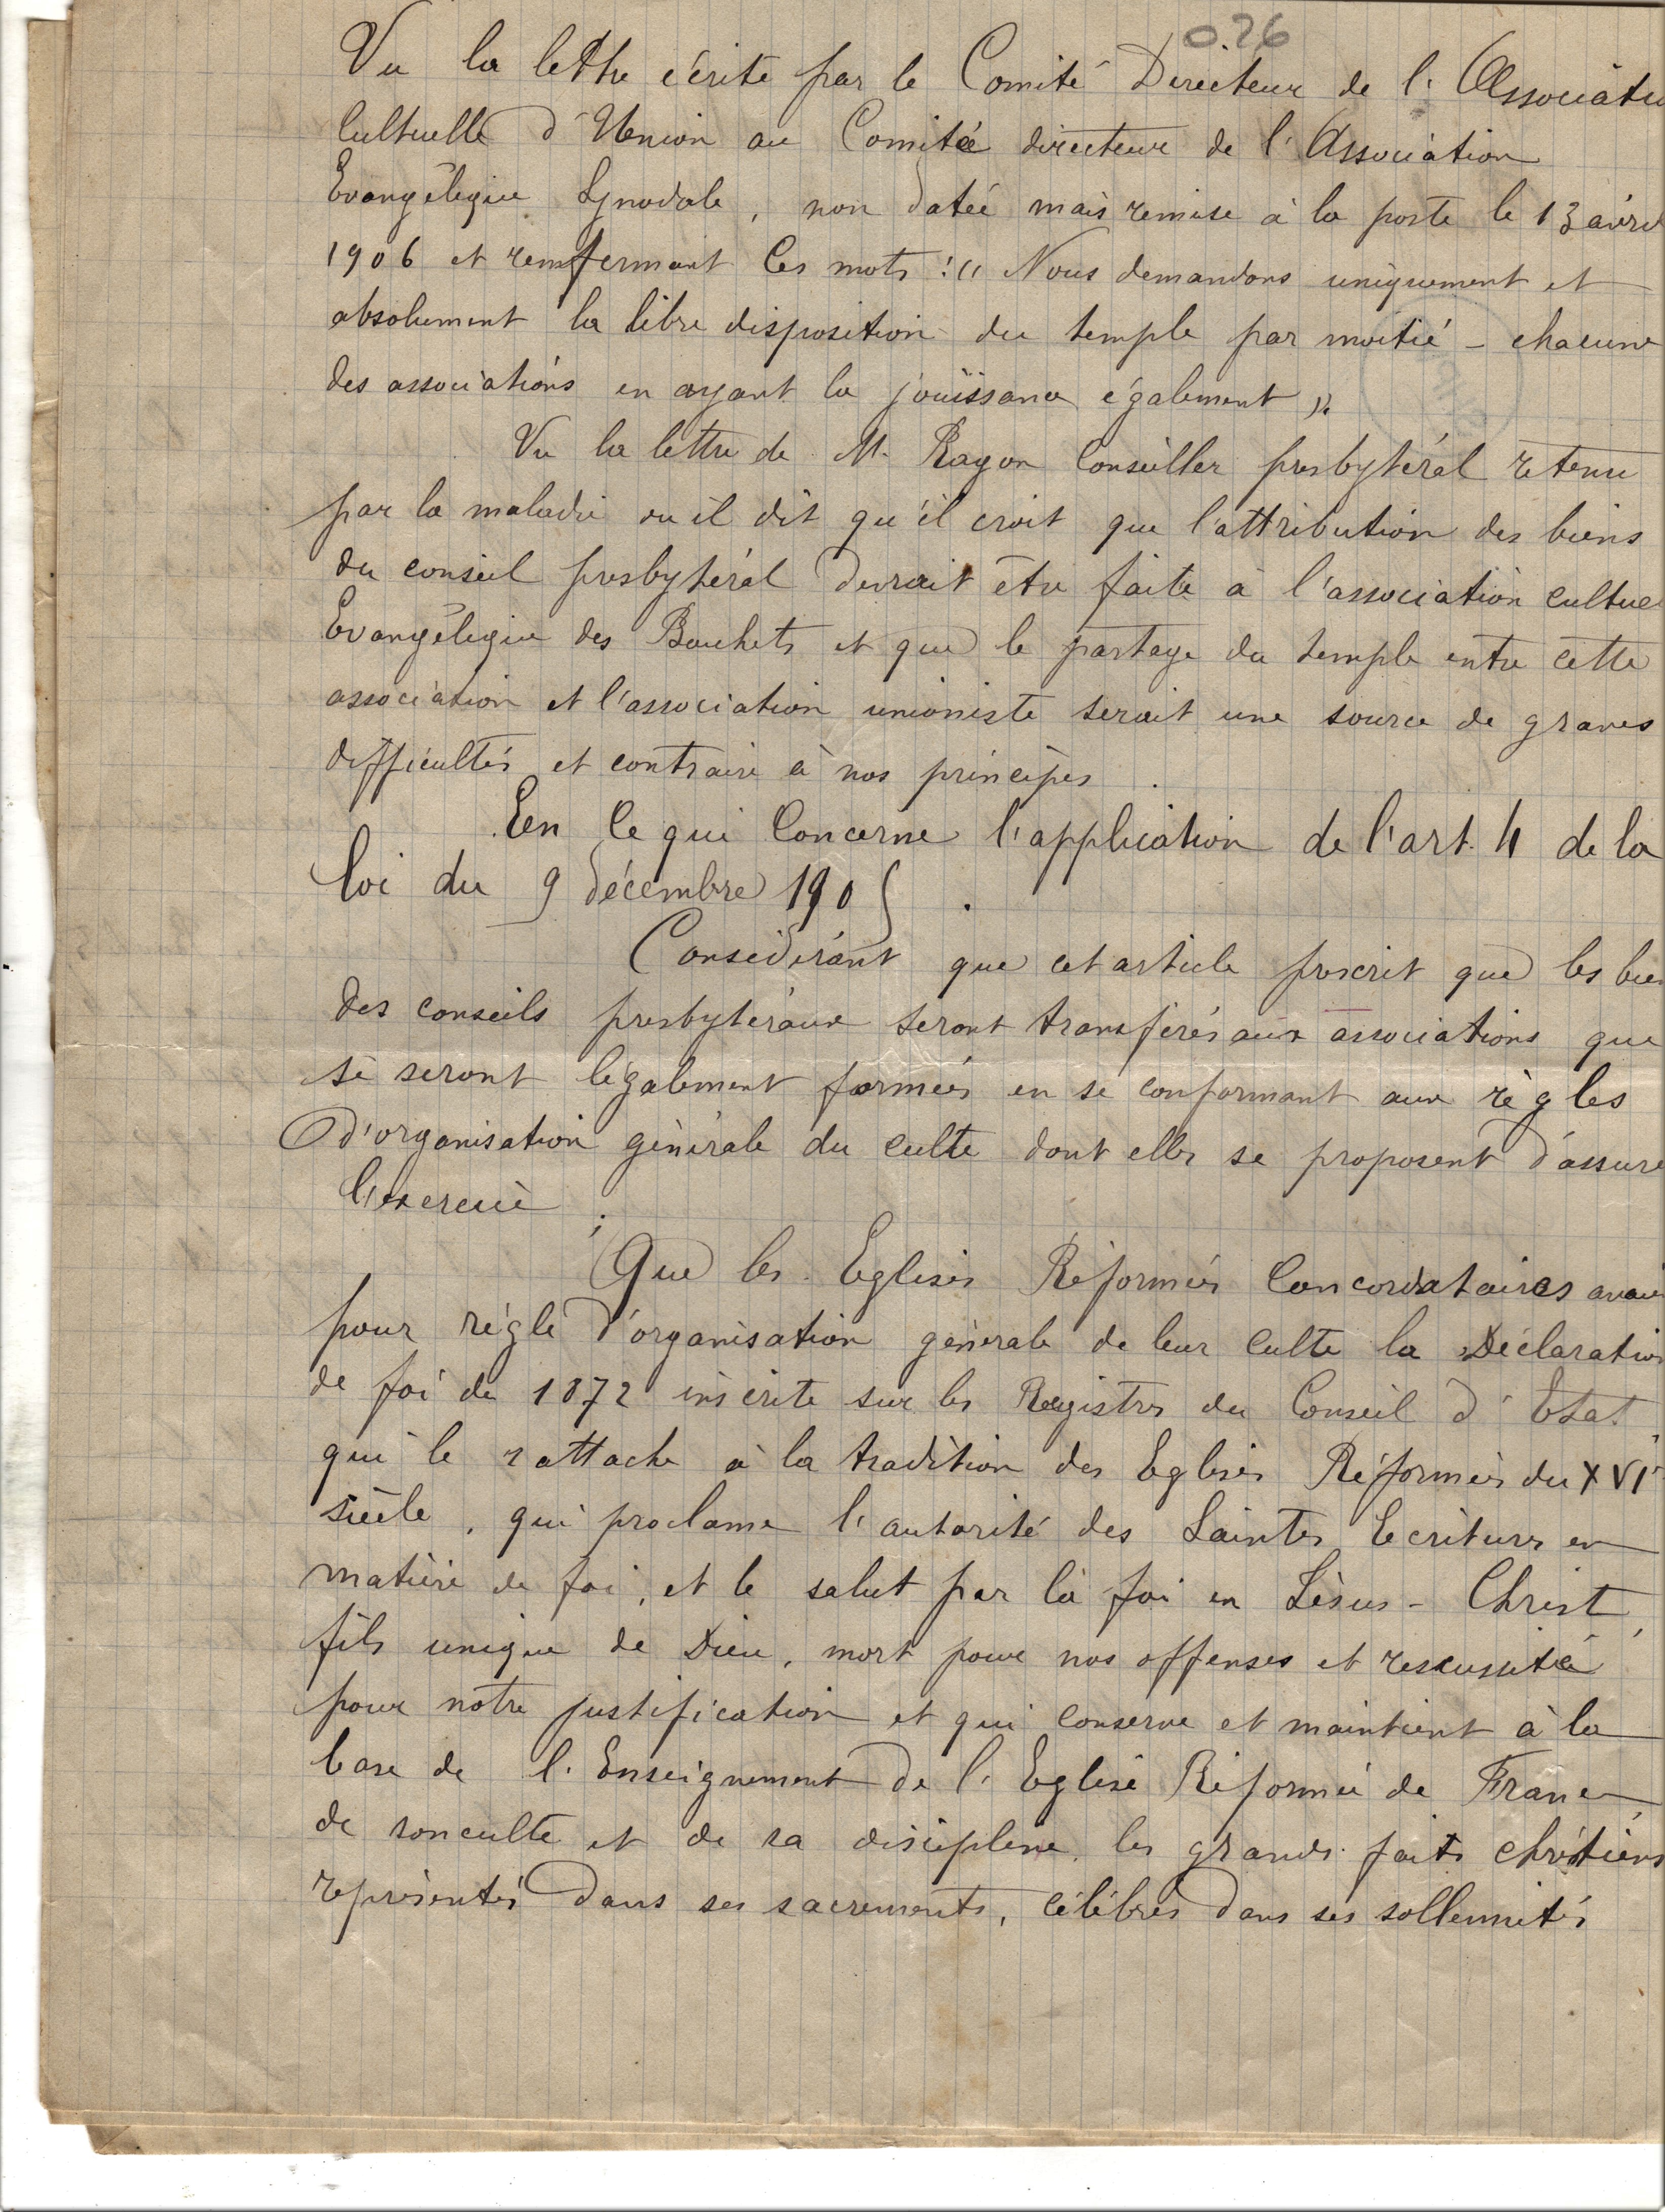 026
Vu la lettre écrite par le Comité Directeur de l'Associatio
Cultuelle d'Union au Comité directeur de l'Association
Evangélique Synodale, non datée mais remise à la poste le 13 avril
1906 et renfermant ces mots : « Nous demandons uniquement et
absolument la libre disposition du temple par moitié - chacune
des associations en ayant la jouissance également ».
Vu la lettre de M. Rayon Conseiller presbytéral retenu
par la maladie ou il dit qu'il croit que l'attribution des biens
du conseil presbytéral devrait être faite à l'association cultuel
Evangélique des Bouhets et que le partage du temple entre cette
association et l'association unioniste serait une source de graves
difficultés et contraire à nos principes.
En ce qui concerne l'application de l'art. 4 de la
loi du 9 décembre 1905.
Considérant que cet article prescrit que les bien
des conseils presbytéraux seront transférés aux associations qui
se seront légalement formées en se conformant aux règles
d'organisation générale du culte dont elles se proposent d'assure
l'exercice ;
Que les Eglises Réformées Concordataires avaie
pour règle d'organisation générale de leur culte la Déclaration
de foi de 1872 inscrite sur les Registres du Conseil d'Etat
qui le rattache à la tradition des Eglises Réformées du XVIe
siècle, qui proclame l'autorité des Saintes Ecritures en
matière de foi, et le salut par la foi en Jésus-Christ,
fils unique de Dieu, mort pour nos offenses et ressuscité
pour notre justification et qui conserve et maintient à la
base de l'Enseignement de l'Eglise Réformée de France,
de son culte et de sa discipline, les grands faits chrétiens
représentés dans ses sacrements, célébrés dans ses sollennités